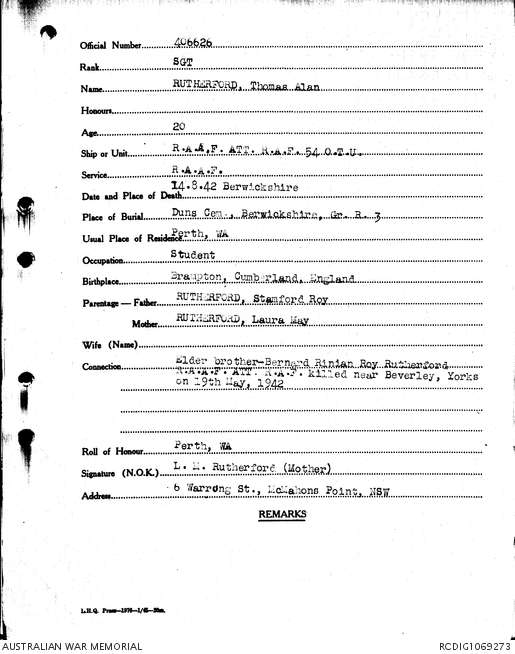 Official Number 406626
Rank SGT
Name RUTHERFORD, Thomas Alan
Honours
Age 20
Ship or Unit R.A.A.F. ATT. R.A.F. 54 O.T.U.
Service R.A.A.F.
Date and Place of Death 14.8.42 Berwickshire
Place of Burial Duns Cem., Berwickshire, Gr. R. 3
Usual Place of Residence Perth, WA
Occupation Student
Birthplace Brampton, Cumberland, England
Parentage — Father RUTHERFORD, Stamford Roy
Mother RUTHERFORD, Laura May
Wife (Name)
Connection Elder brother-Bernard Rinian Roy Rutherford
R.A.A.F. ATT. R.A.F. killed near Beverley, Yorks
on 19th May, 1942
Roll of Honour Perth, WA
Signature (N.O.K.) L. M. Rutherford (Mother)
Address 6 Warrong St., McMahons Point, NSW
REMARKS
L.H.Q. Press—1976—1/45—30m.
AUSTRALIAN WAR MEMORIAL
RCDIG1069273